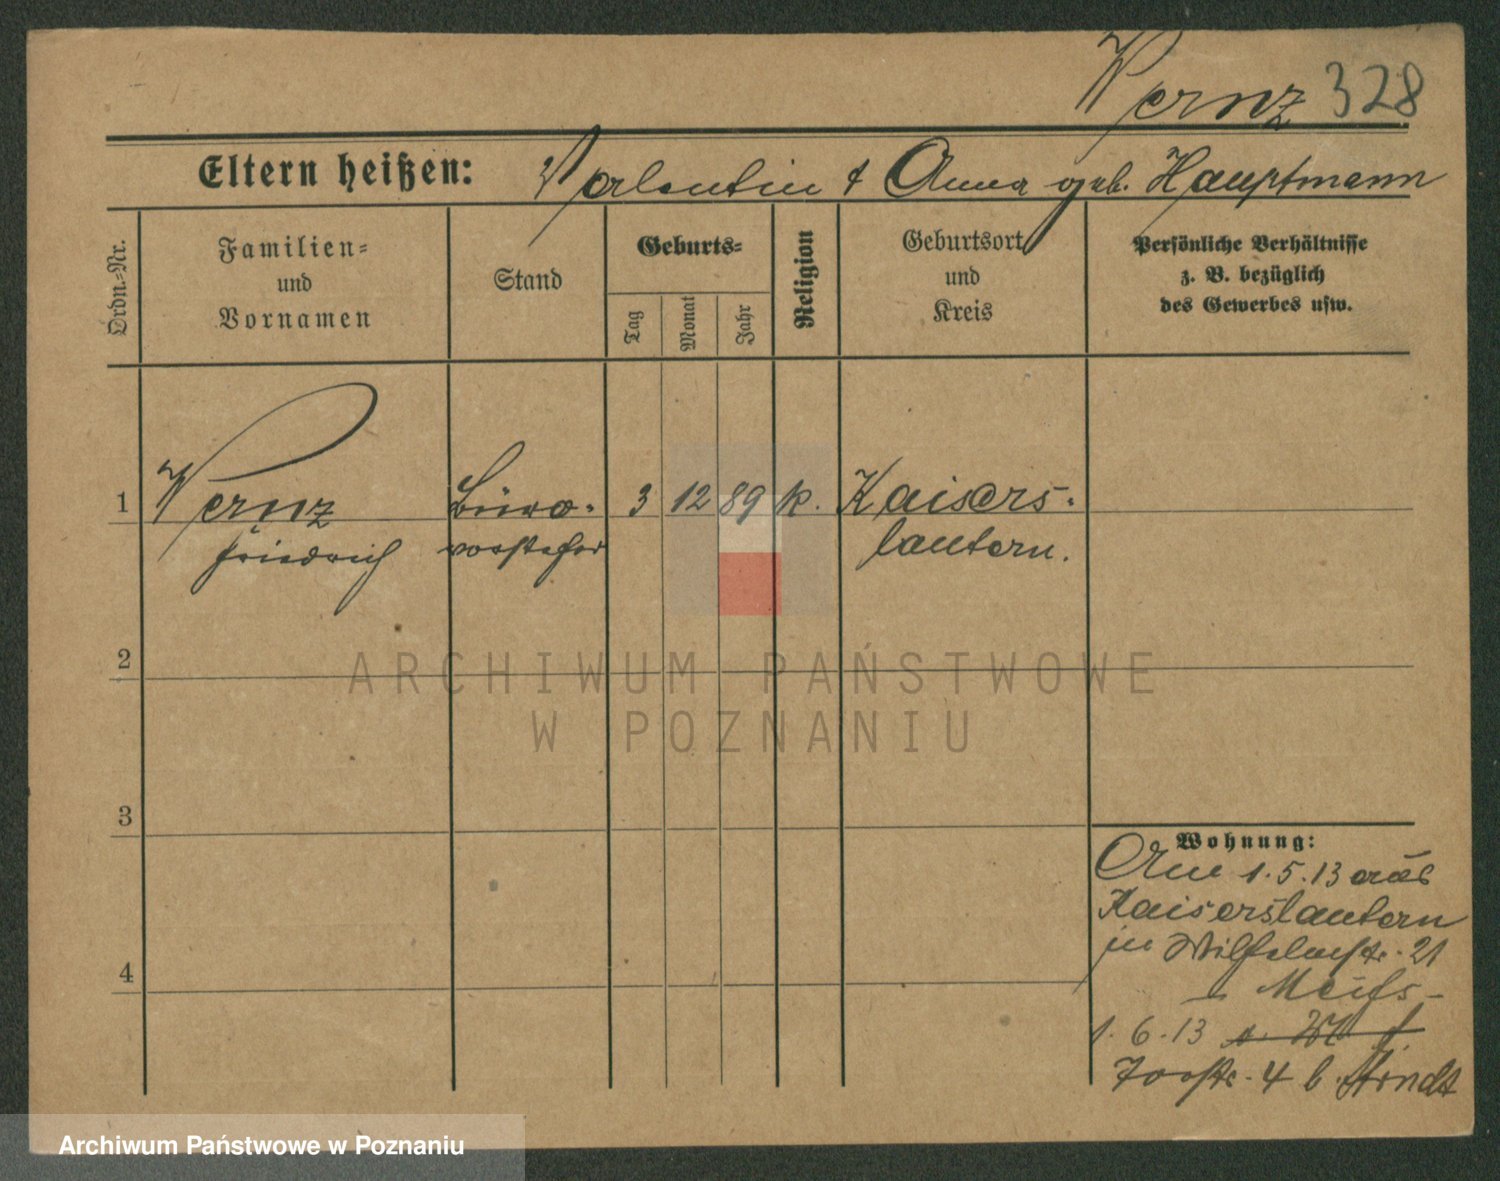 Wernz 328
Eltern heißen: Valentin & Anna geb. Hauptmann
Ordn.-Nr.
Familien-
und
Vornamen
Stand
Geburts-
Tag
Monat
Jahr
Religion
Geburtsort
und
Kreis
Persönliche Verhältnisse
z. B. bezüglich
des Gewerbes usw.
1 Wernz Büro- 3 12 89 k. Kaisers-
Friedrich vorsteher lautern.
2
ARCHIWUM PAŃSTWOWE
W POZNANIU
3
Wohnung:
Am 1.5.13 aus
Kaiserslautern
in Wilhelmstr. 21
4
1.6.13
Torstr. 4 b. Arndt
Archiwum Państwowe w Poznaniu